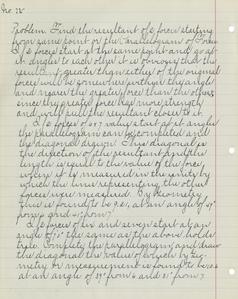 No. 12
Problem. Find the resultant of 2 forces starting
from same point or the Parallelogram of Forces
If forces start at the same point and go off
at angles to each other it is obvious that the
resultant, greater than either of the original
forces will be somewhere within the angle
and nearer the greater force than the other
since the greater force has more strength
and will pull the resultant closer to it.
If 2 forces of value start at angle
the parallelogram can be completed and
the diagonal drawn. This diagonal is
the direction of the resultant and the
length is equal to the value of the force,
when it is measured in the units by
which the lines representing the other
forces were measured. By
this is found to be at an angle of
from and from
If forces of six and seven start at an
angle of the same as the above holds
true. Complete the parallelogram and draw
the diagonal the value of which by
or measurement is found to be
at an angle of from 6 and from 7.